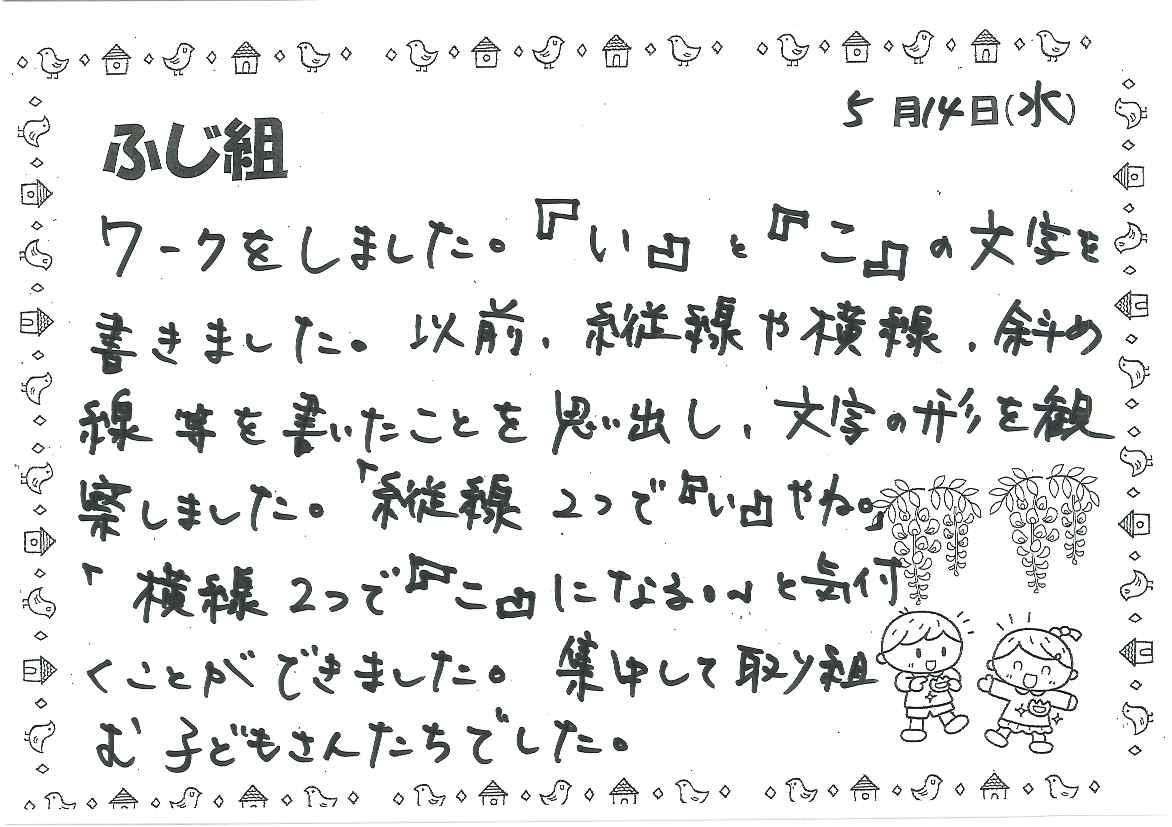 5月14日(水)
ふじ組
ワークをしました。『い』と『こ』の文字を
書きました。以前、縦線や横線、斜め
線等を書いたことを思い出し、文字の形を観
察しました。「縦線2つで『い』やね。」
「横線2つで『こ』になる。」と気付
くことができました。集中して取り組
む子どもさんたちでした。